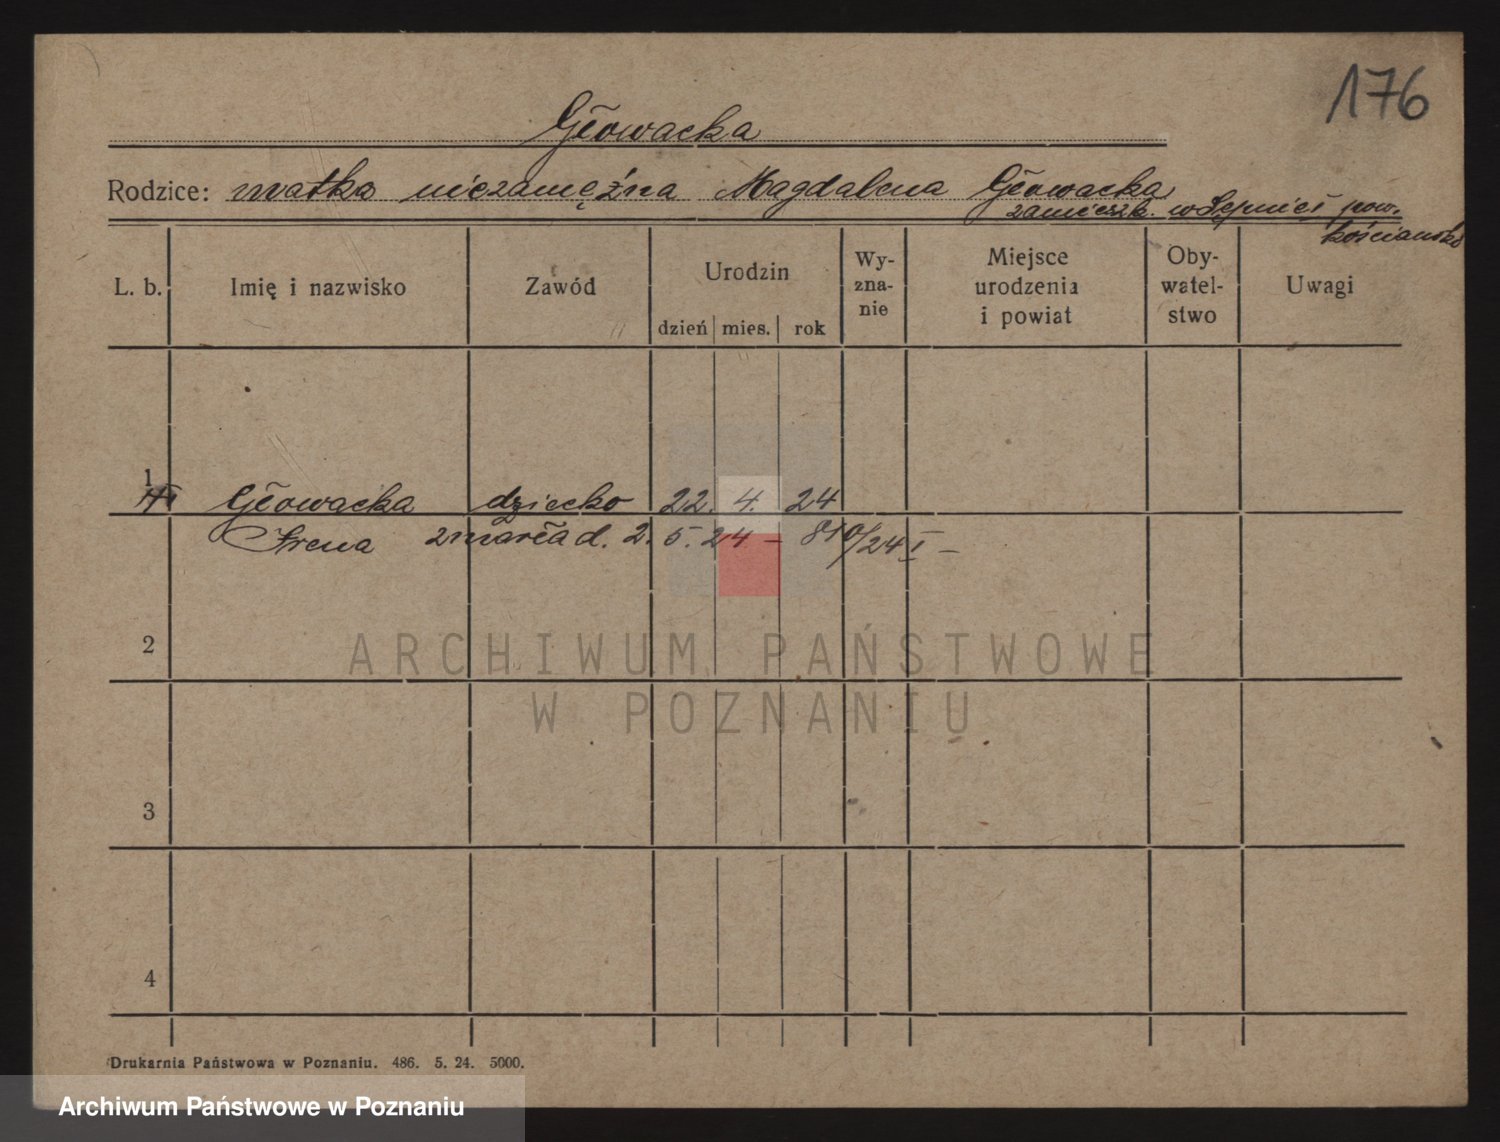 176
Głowacka
Rodzice: matka niezamężna Magdalena Głowacka
zamieszk. w pow.
kościański
L. b. Imię i nazwisko Zawód Urodzin dzień mies. rok Wy-zna-nie Miejsce urodzenia i powiat Oby-watel-stwo Uwagi
1
Głowacka dziecko 22. 4. 24
Irena zmarła d. 2. 5. 24 – 810/24 I –
2
3
4
Drukarnia Państwowa w Poznaniu. 486. 5. 24. 5000.
ARCHIWUM PAŃSTWOWE
W POZNANIU
Archiwum Państwowe w Poznaniu